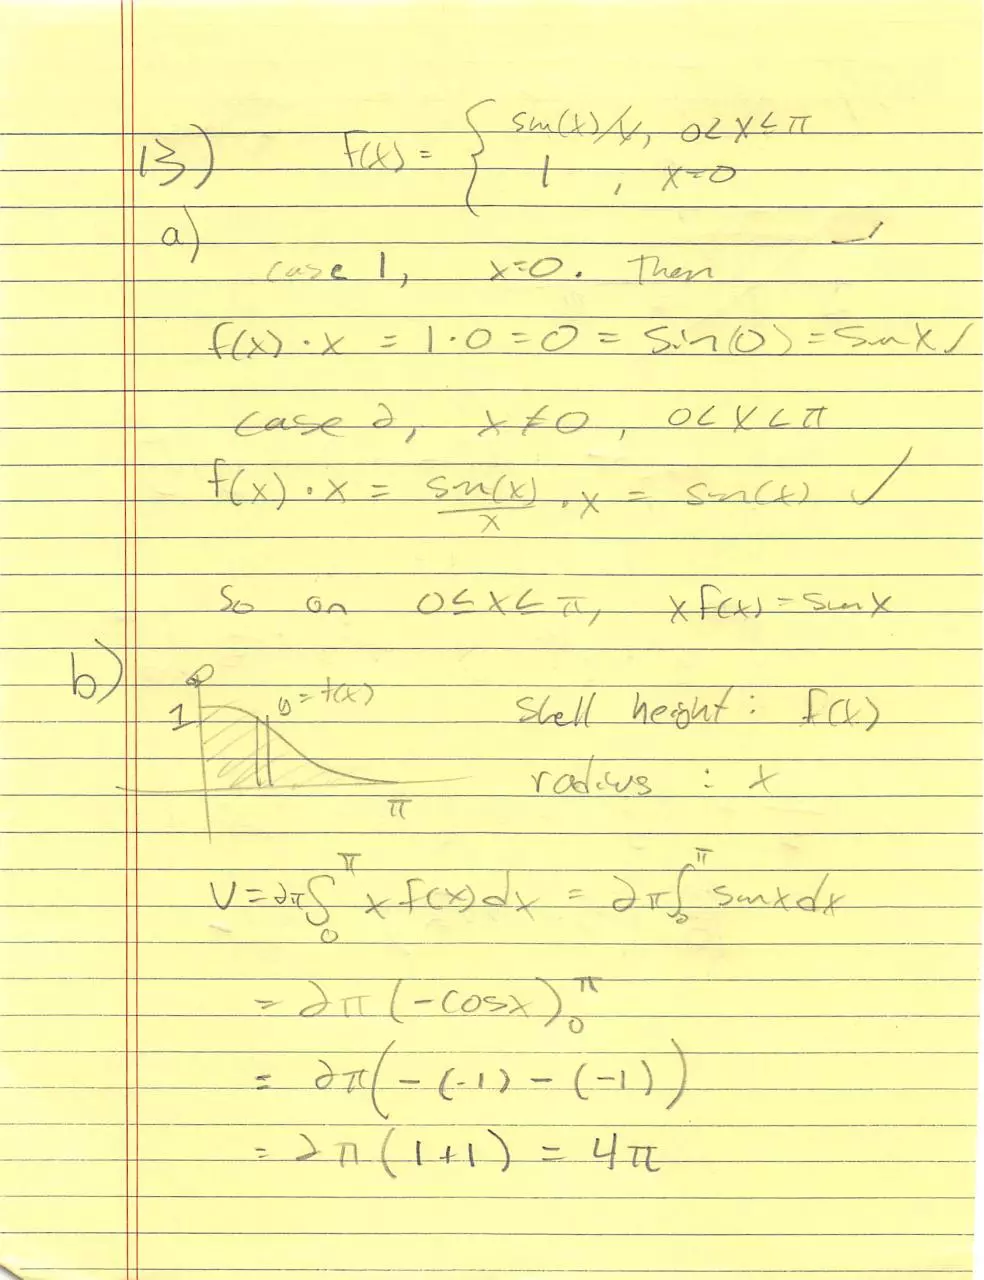 13) f(x) = { sin(x)/x, 0<x≤π
1 , x=0
a)
case 1, x=0. Then ✓
f(x)·x = 1·0=0 = sin(0) = sin x ✓
case 2, x≠0, 0<x<π
f(x)·x = sin(x)/x ·x = sin(x) ✓
So on 0≤x≤π, xf(x)=sinx
b)
1 y=f(x) Shell height: f(x)
π radius : x
V=2π∫₀^π x f(x)dx = 2π∫₀^π sinxdx
= 2π(-cosx)₀^π
= 2π(-(-1)-(-1))
= 2π(1+1) = 4π